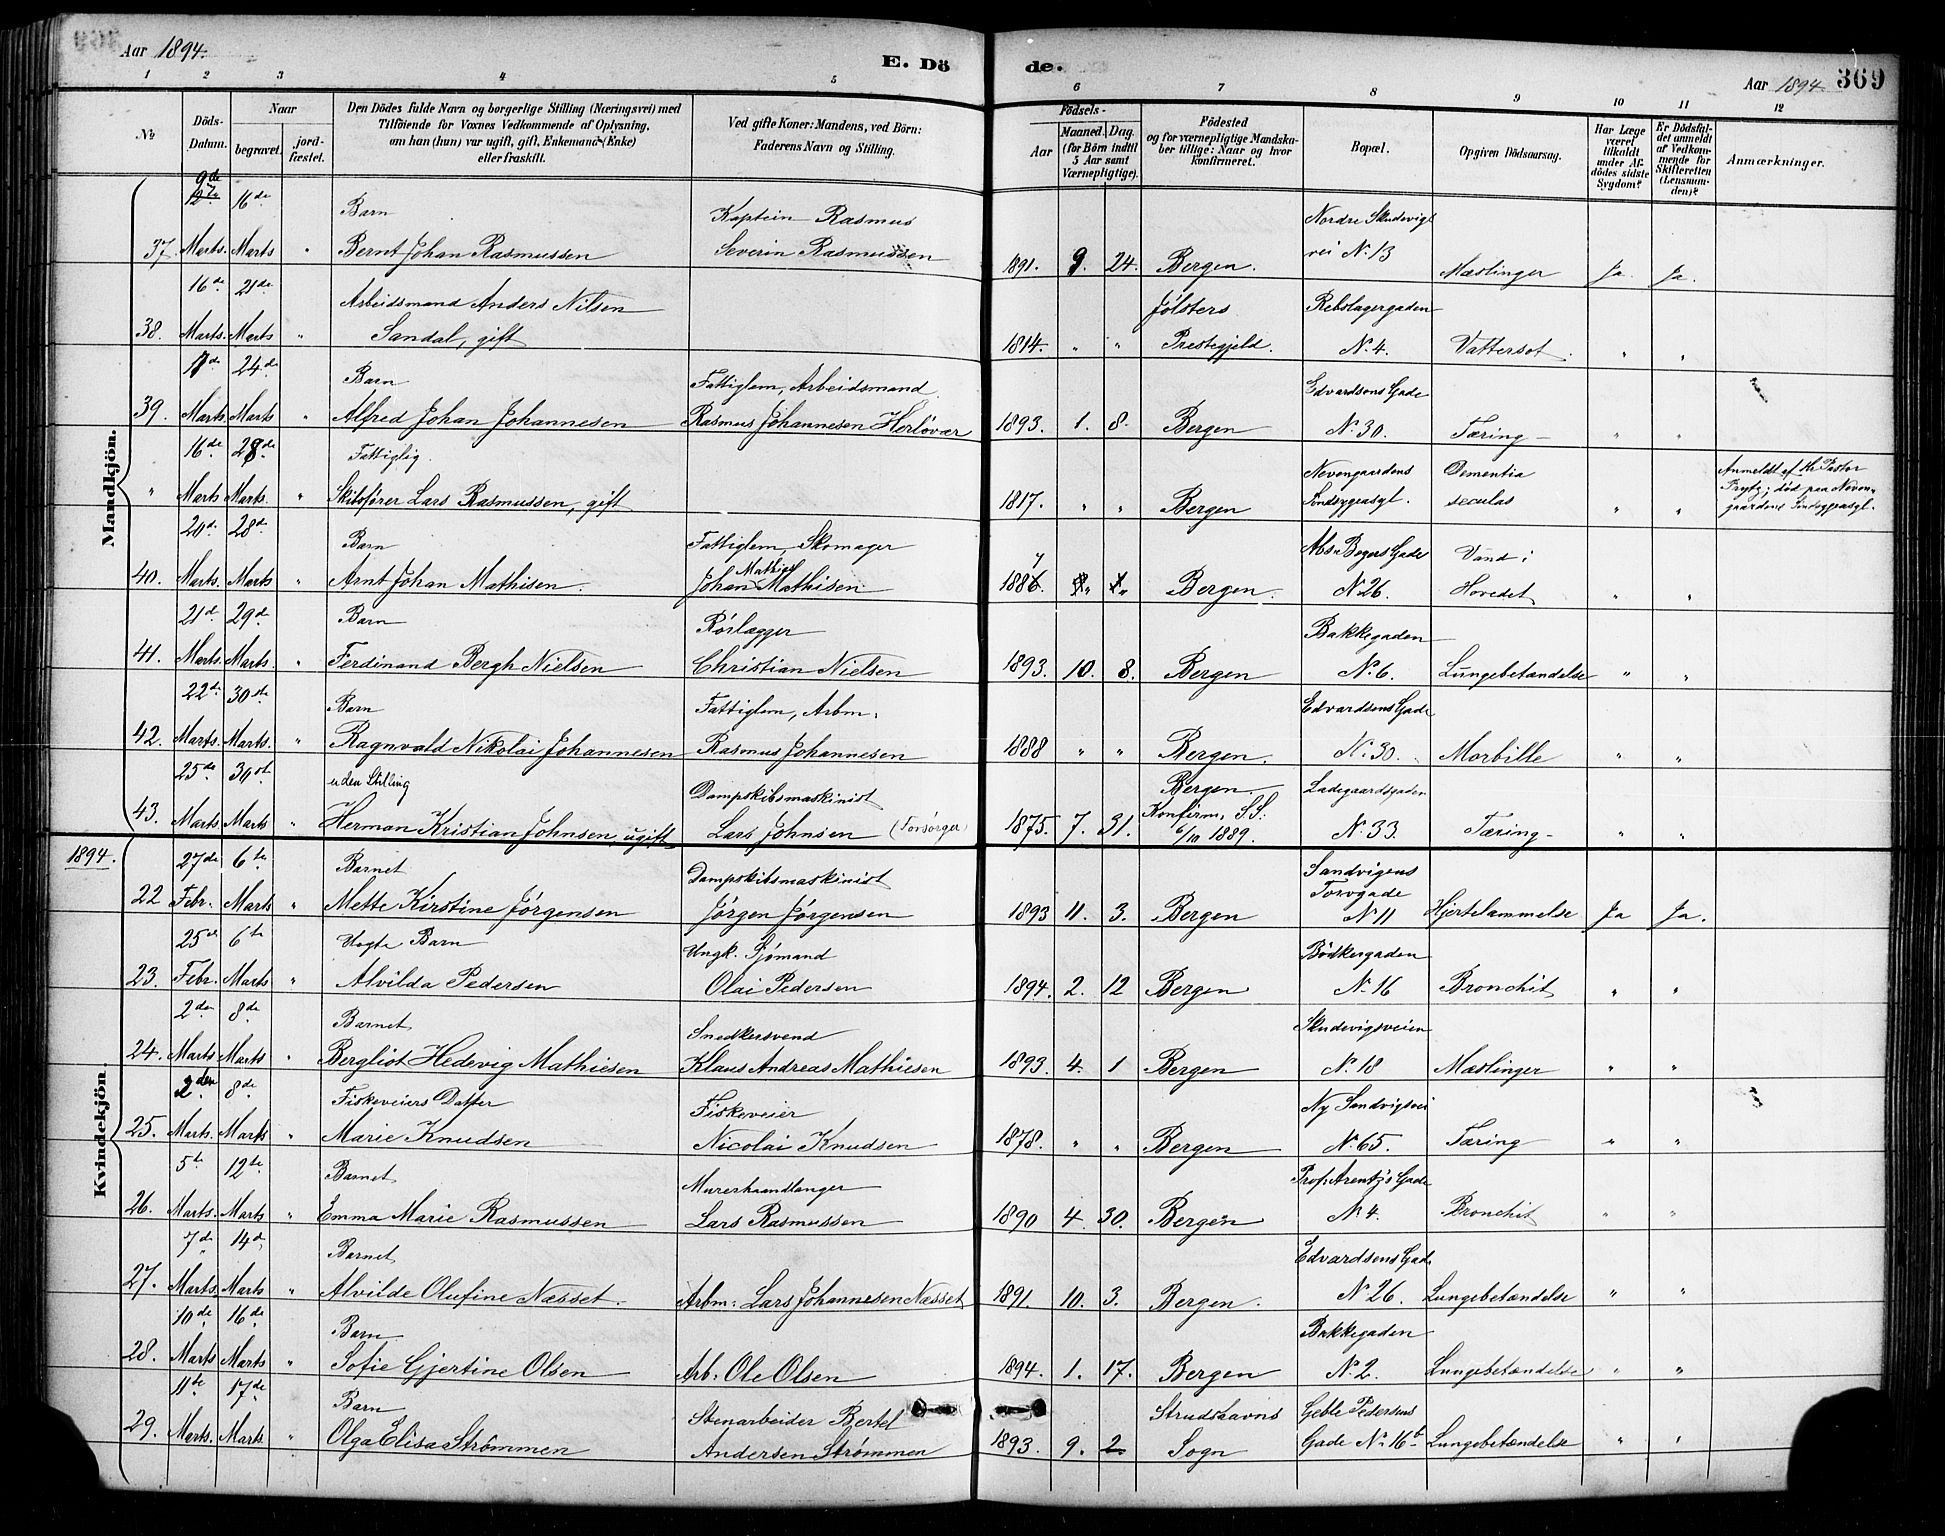 Aar 1894.
E. Dö
de.
Aar 1894
369
1 2 3 4 5 6 7 8 9 10 11 12
No
Döds-Datum.
Naar
begravet.
jord-fæstet.
Den Dödes fulde Navn og borgerlige Stilling (Næringsvei) med Tilföiende for Voxnes Vedkommende af Oplysning, om han (hun) var ugift, gift, Enkemand (Enke) eller fraskilt.
Ved gifte Koner: Mandens, ved Börn: Faderens Navn og Stilling.
Födsels-
Aar
Maaned.
Dag.
(for Börn indtil 5 Aar samt Værnepligtige).
Födested og for værnepligtige Mandskaber tillige: Naar og hvor konfirmeret.
Bopæl.
Opgiven Dödsaarsag.
Har Læge været tilkaldt under Afdödes sidste Sygdom?
Er Dödsfaldet anmeldt af Vedkommende for Skifteretten (Lensmanden)?
Anmærkninger.
Mandkjön.
9de
12te 16de Barn Kaptein Rasmus Nordre Skudevigs
37. Marts. Marts " Bernt Johan Rasmussen Severin Rasmussen 1891. 9. 24. Bergen. vei No 13 Mæslinger Ja. Ja.
16de 21de Arbeidsmand Anders Nilsen Jølsters Rebslagergaden
38. Marts. Marts " Sandal, gift 1814. " " Prestegjeld. No 4. Vattersot. " "
17de 24de Barn Fattiglem, Arbeidsmand Edvardsens Gade
39. Marts Marts " Alfred Johan Johannesen Rasmus Johannesen Herløvær 1893. 1. 8. Bergen No 30. Tæring " "
16de 28de Fattiglig. Nevengaardens Dementia Anmeldt af Hr Pastor
" Marts Marts. " Skibsfører Lars Rasmussen, gift 1817. " " Bergen Sindsygeasyl. " " Frytz; död paa Neven-
gaardens Sindsygeasyl.
20de 28de Barn Fattiglem, Skomager Abs. Beyers Gade Vand i
40. Marts. Marts " Arnt Johan Mathisen. Johan Mathias Mathisen 1887. " " Bergen. No 26. Hovedet " "
21de 29de Barn Rörlægger Bakkegaden
41. Marts. Marts. " Ferdinand Bergh Nielsen Christian Nielsen 1893. 10. 8. Bergen No 6. Lungebetændelse " "
22de 30te Barn Fattiglem, Arbm. Edvardsens Gade
42. Marts. Marts. " Ragnvald Nikolai Johannesen Rasmus Johannesen 1888 " " Bergen. No 30. Morbille " "
25de uden Stilling Dampskibsmaskinist Bergen. Ladegaardsgaden
43. Marts Marts " Herman Kristian Johnsen, ugift Lars Johnsen (Forsørger) 1875. 7. 31. Konfirm. S.S. 6/10 1889. No 33. Tæring " "
Kvindekjön
1894. 27de 6te Barnet Dampskibsmaskinist Sandvigens Torvgade
22 Febr. Marts " Mette Kirstine Jörgensen Jørgen Jørgensen 1893 11. 3. Bergen No 11 Hjertelammelse Ja Ja.
25de 6te Uægte Barn Ungk. Sjømand Bödkergaden
23. Febr. Marts " Alvilda Pedersen Olai Pedersen 1894. 2. 12 Bergen No 16 Bronchit " "
2den 8de Barnet Snedkersvend Skudevigsveien
24. Marts Marts " Bergliot Hedevig Mathiesen Klaus Andreas Mathiesen 1893. 4. 1 Bergen No 18 Mæslinger " "
2den 8de Fiskeveiers Datter Fiskeveier Ny Sandvigsvei
25. Marts. Marts " Marie Knudsen Nicolai Knudsen 1878. " " Bergen No 65. Tæring " "
5te 12te Barnet Murerhaandlanger Prof. Arentz's Gade
26. Marts. Marts " Emma Marie Rasmussen Lars Rasmussen 1890 4. 30. Bergen No 4. Bronchit " "
7de 14de Barnet Edvardsens Gade
27. Marts. Marts " Alvilde Olufine Næsset. Arbm: Lars Johannesen Næsset 1891. 10. 3. Bergen. No 26. Lungebetændelse " "
10de 16de Barn Bakkegaden
28. Marts Marts " Sofie Gjertine Olsen Arb. Ole Olsen 1894. 1. 17. Bergen No 2. Lungebetændelse " "
11te 17de Barn Stenarbeider Bertel Strudshavns Geble Pedersens
29. Marts. Marts. " Olga Elisa Strömmen Andersen Strømmen 1893. 9. 2 Sogn Gade No 16b Lungebetændelse " "